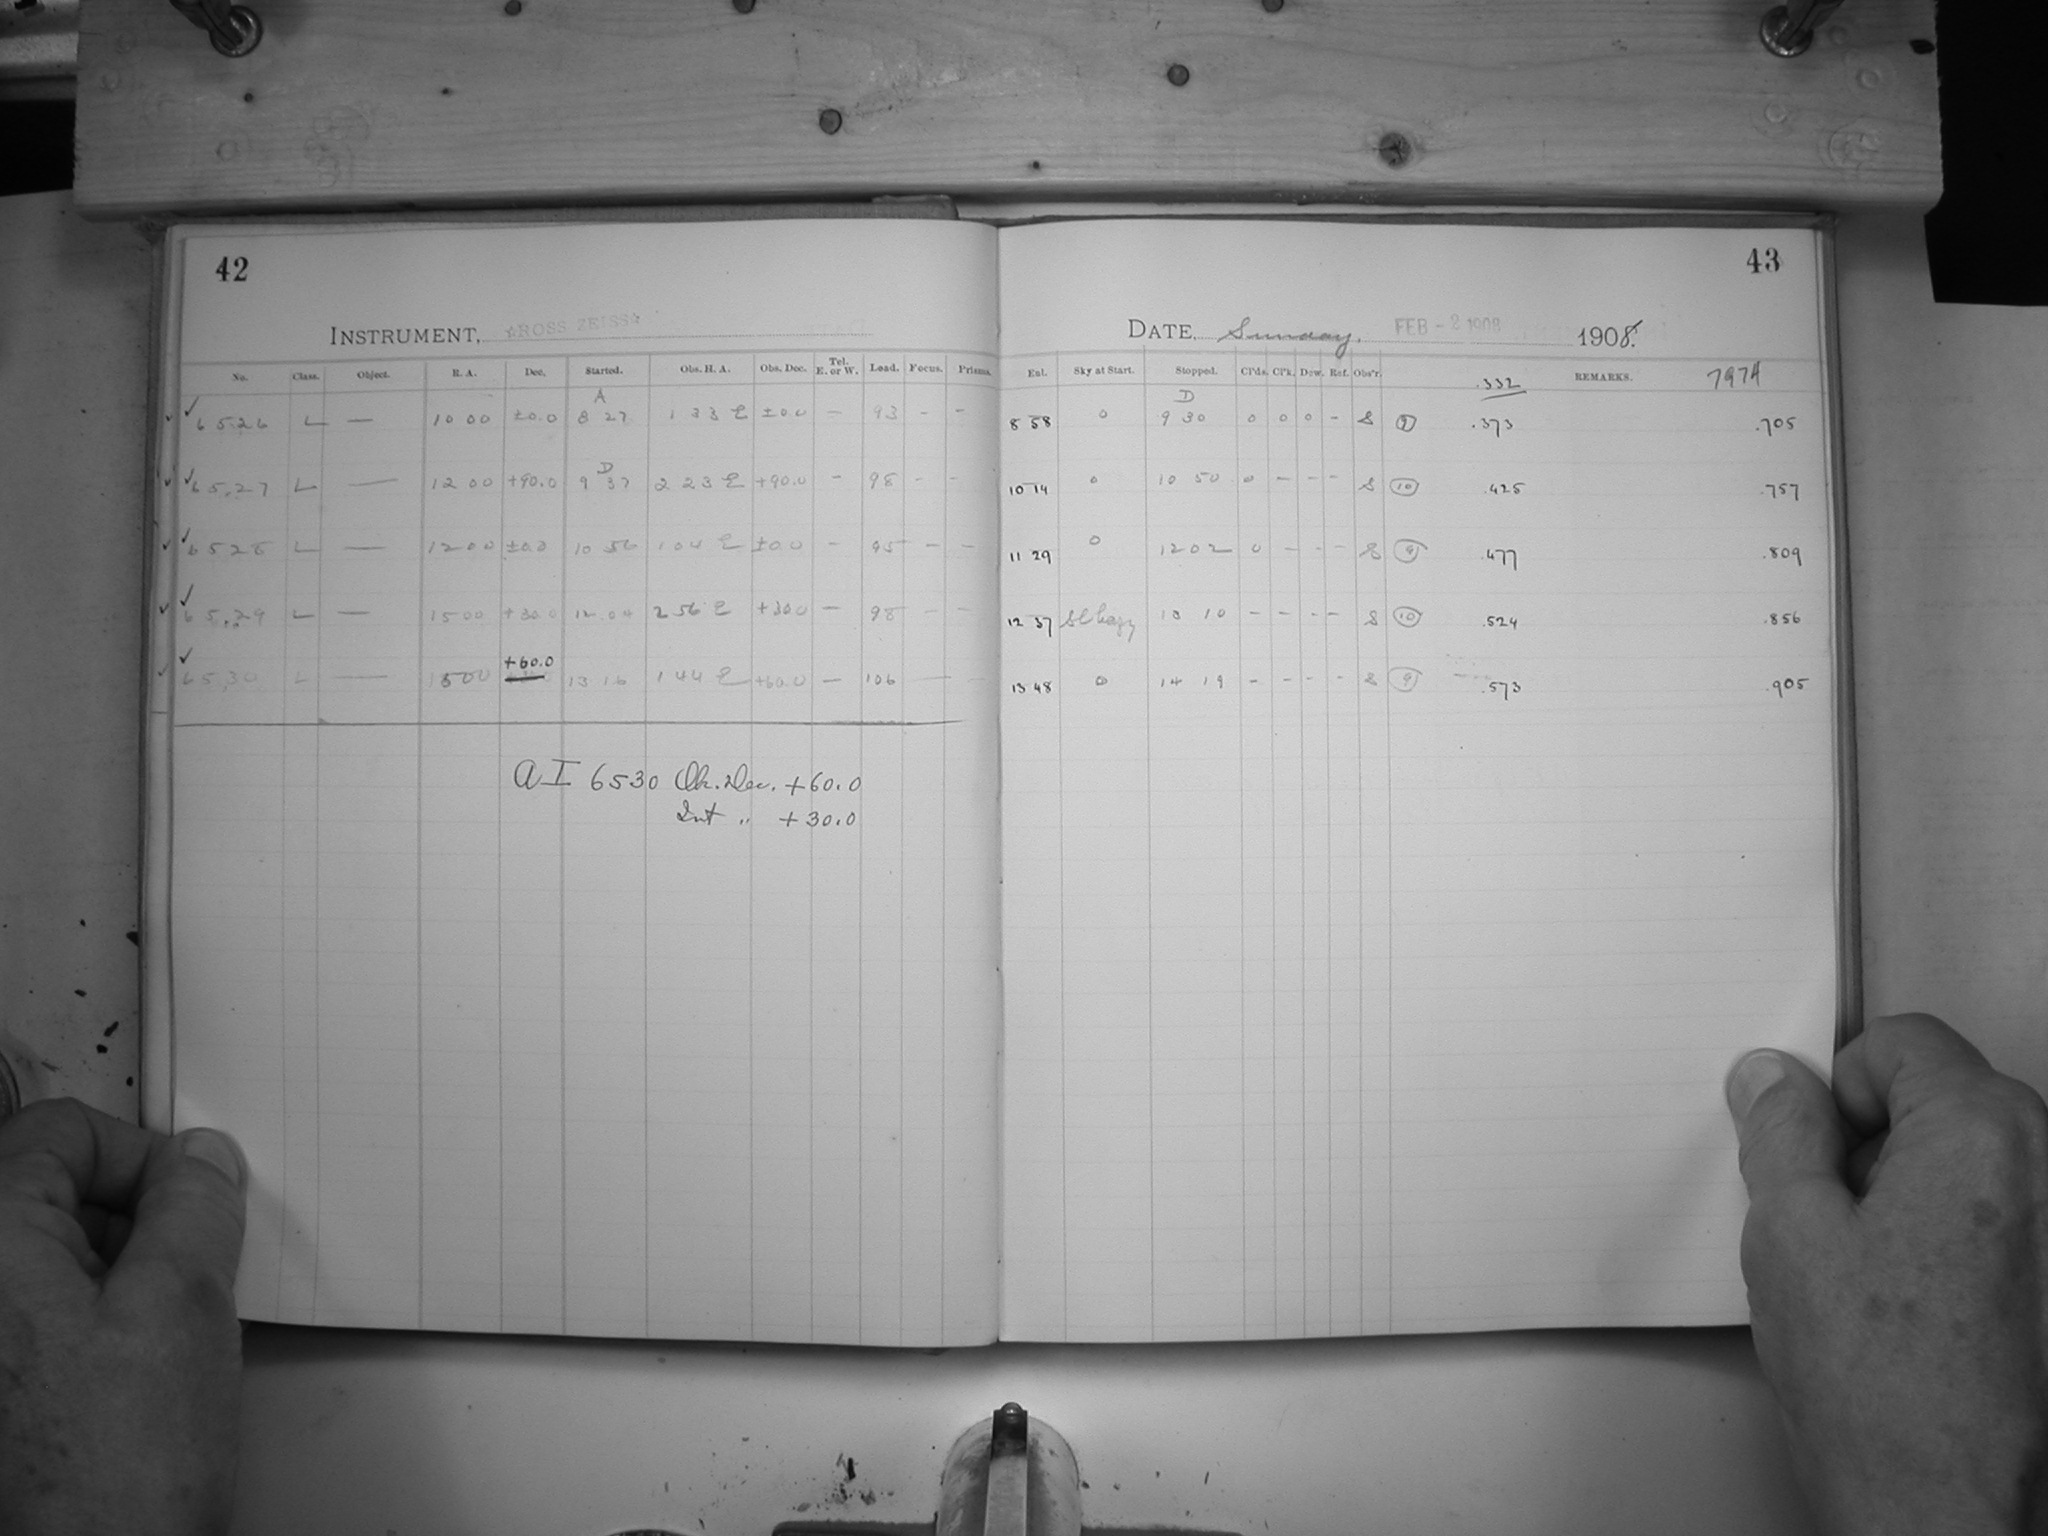 42
43
INSTRUMENT, ☆ROSS ZEISS☆
DATE, Sunday, FEB - 2 1908 1908.
No. Class. Object. R. A. Dec. Started. Obs. H. A. Obs. Dec. Tel. E. or W. Load. Focus. Prisms. Ent. Sky at Start. Stopped. Cl'ds. Cl'k. Dew. Ref. Obs'r. .332 REMARKS. 7974
A D
6526 L — 10 00 ±0.0 8 27 1 33 E ±0.0 — 93 - - 8 58 0 9 30 0 0 0 - S 9 .373 .705
D
6527 L — 12 00 +90.0 9 37 2 23 E +90.0 - 98 - - 10 14 0 10 50 0 - - - S 10 .425 .757
6528 L — 12 00 ±0.0 10 56 1 04 E ±0.0 - 95 - - 11 29 0 12 02 0 - - - S 9 .477 .809
6529 L — 15 00 +30.0 12 04 2 56 E +30.0 — 98 - - 12 37 Sl hazy 13 10 - - - - S 10 .524 .856
+60.0
6530 L — 1500 13 16 1 44 E +60.0 — 106 — - 13 48 0 14 19 - - - - S 9 .573 .905
A I 6530 Ob. Dec. +60.0
Int „ +30.0